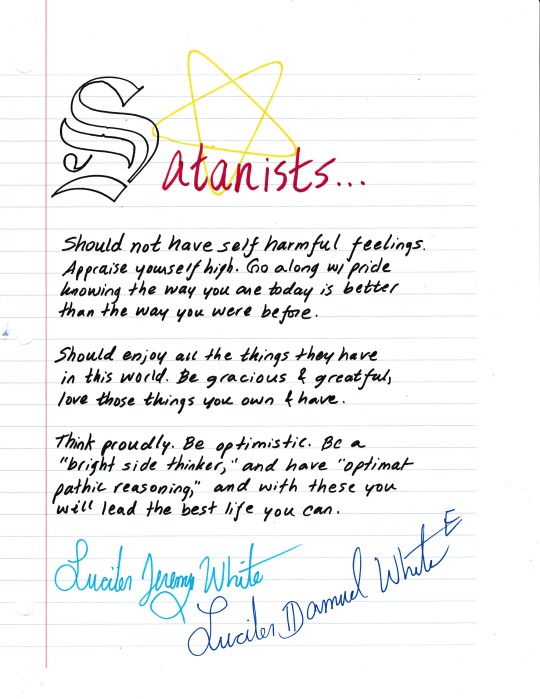 Satanists...
Should not have self harmful feelings.
Appraise yourself high. Go along w/ pride
knowing the way you are today is better
than the way you were before.
Should enjoy all the things they have
in this world. Be gracious & greatful,
love those things you own & have.
Think proudly. Be optimistic. Be a
"bright side thinker," and have "optimat
pathic reasoning," and with these you
will lead the best life you can.
Lucifer Jeremy White
Lucifer Damuel White